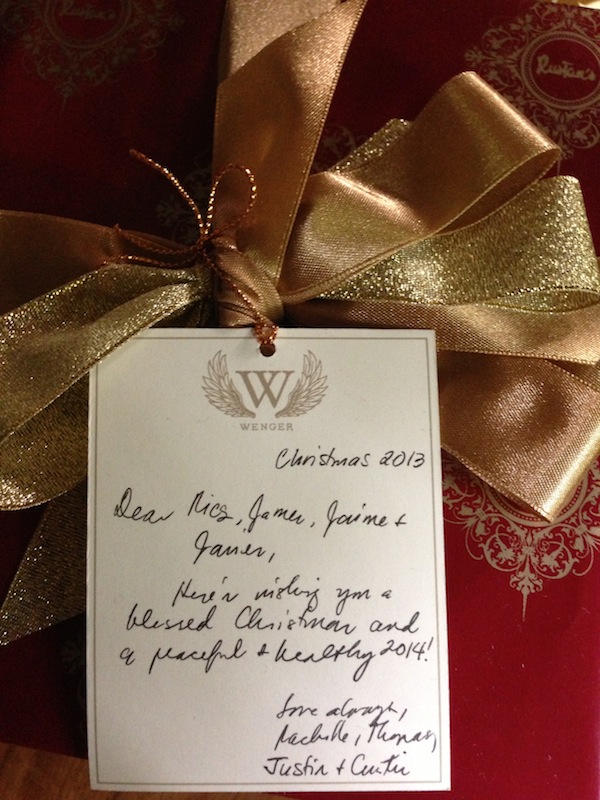 Rustan's
Rustan's
W
WENGER
Christmas 2013
Dear Rics, James, Jaime +
Javier,
Here's wishing you a
blessed Christmas and
a peaceful & healthy 2014!
Love always,
Rachelle, Thomas,
Justin + Curtis